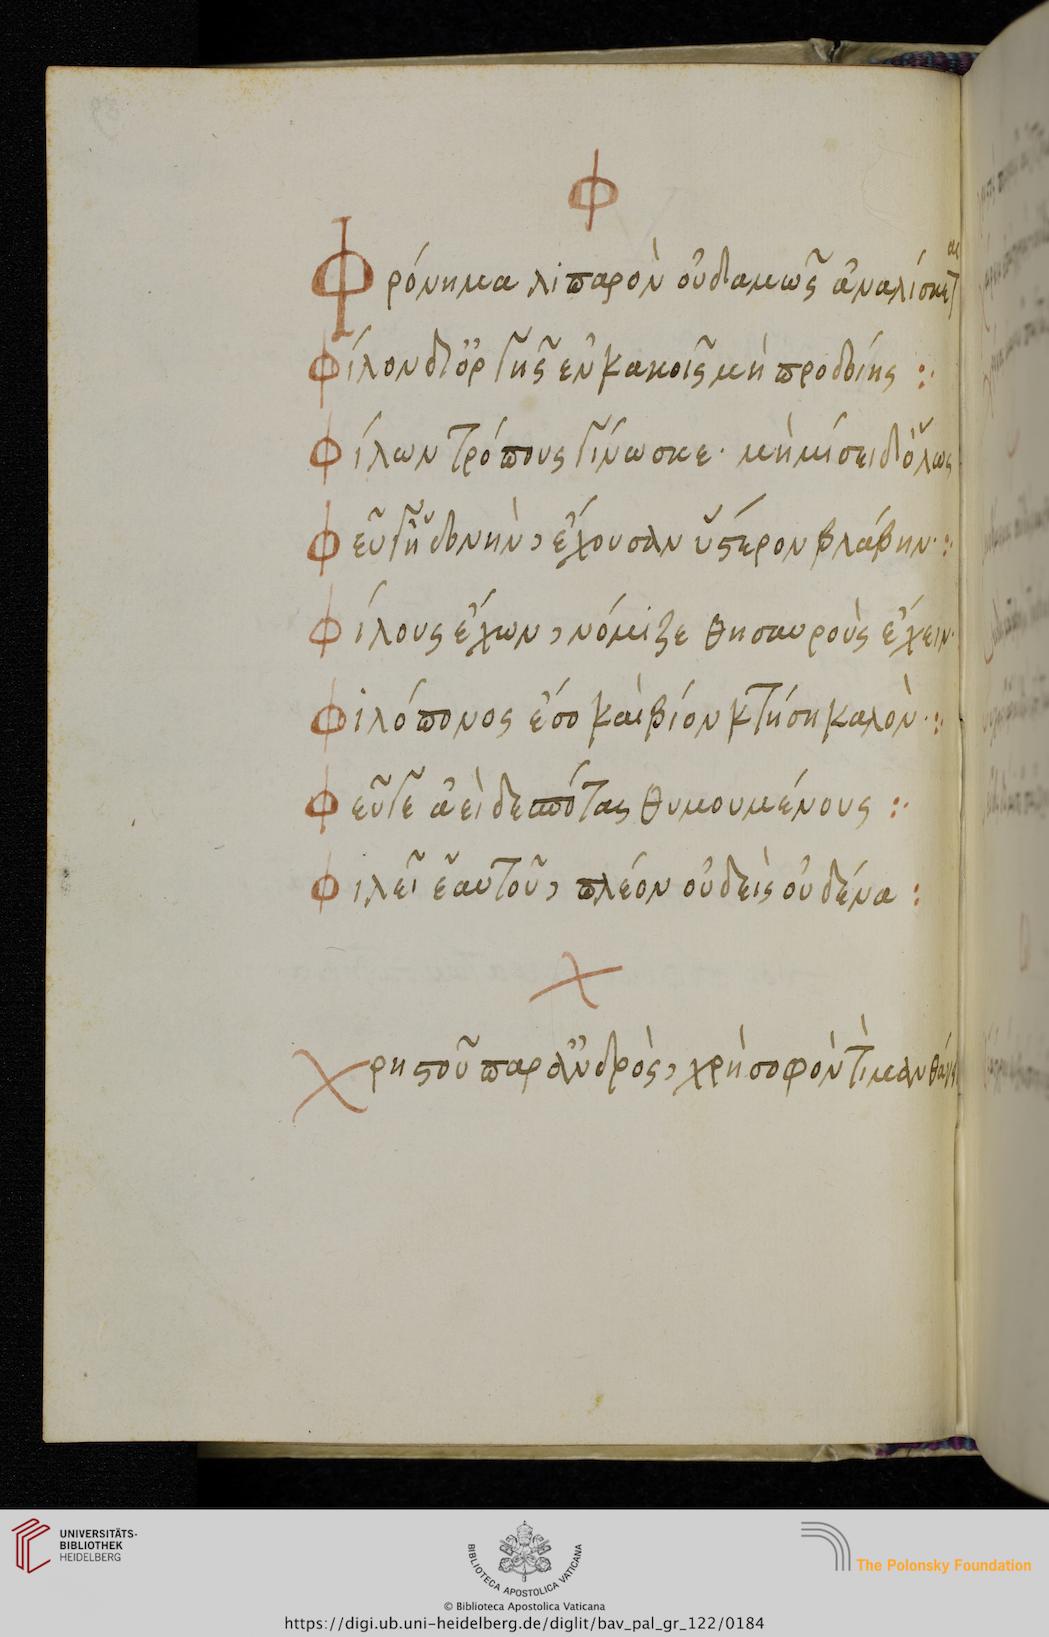 39
φ
Φρόνημα λιπαρὸν οὐδαμῶς ἀναλίσκεται
φίλον δι' ὀργῆς ἐν κακοῖς μὴ προδώης :·
φίλων τρόπους γίνωσκε· μὴ μίσει δ' ὅλως
φεῦγ' ἡδονὴν, ἔχουσαν ὕστερον βλάβην·:
φίλους ἔχων, νόμιζε θησαυροὺς ἔχειν·
φιλόπονος ἔσο καὶ βίον κτήση καλὸν·:
φεῦγε ἀεὶ δεσπότας θυμουμένους :·
φιλεῖ ἑαυτοῦ, πλέον οὐδεὶς οὐδένα :
χ
χρηστοῦ παρ' ἀνδρὸς, χρὴ σοφόν τι μανθάν
UNIVERSITÄTS-
BIBLIOTHEK
HEIDELBERG
BIBLIOTECA APOSTOLICA VATICANA
The Polonsky Foundation
© Biblioteca Apostolica Vaticana
https://digi.ub.uni-heidelberg.de/diglit/bav_pal_gr_122/0184